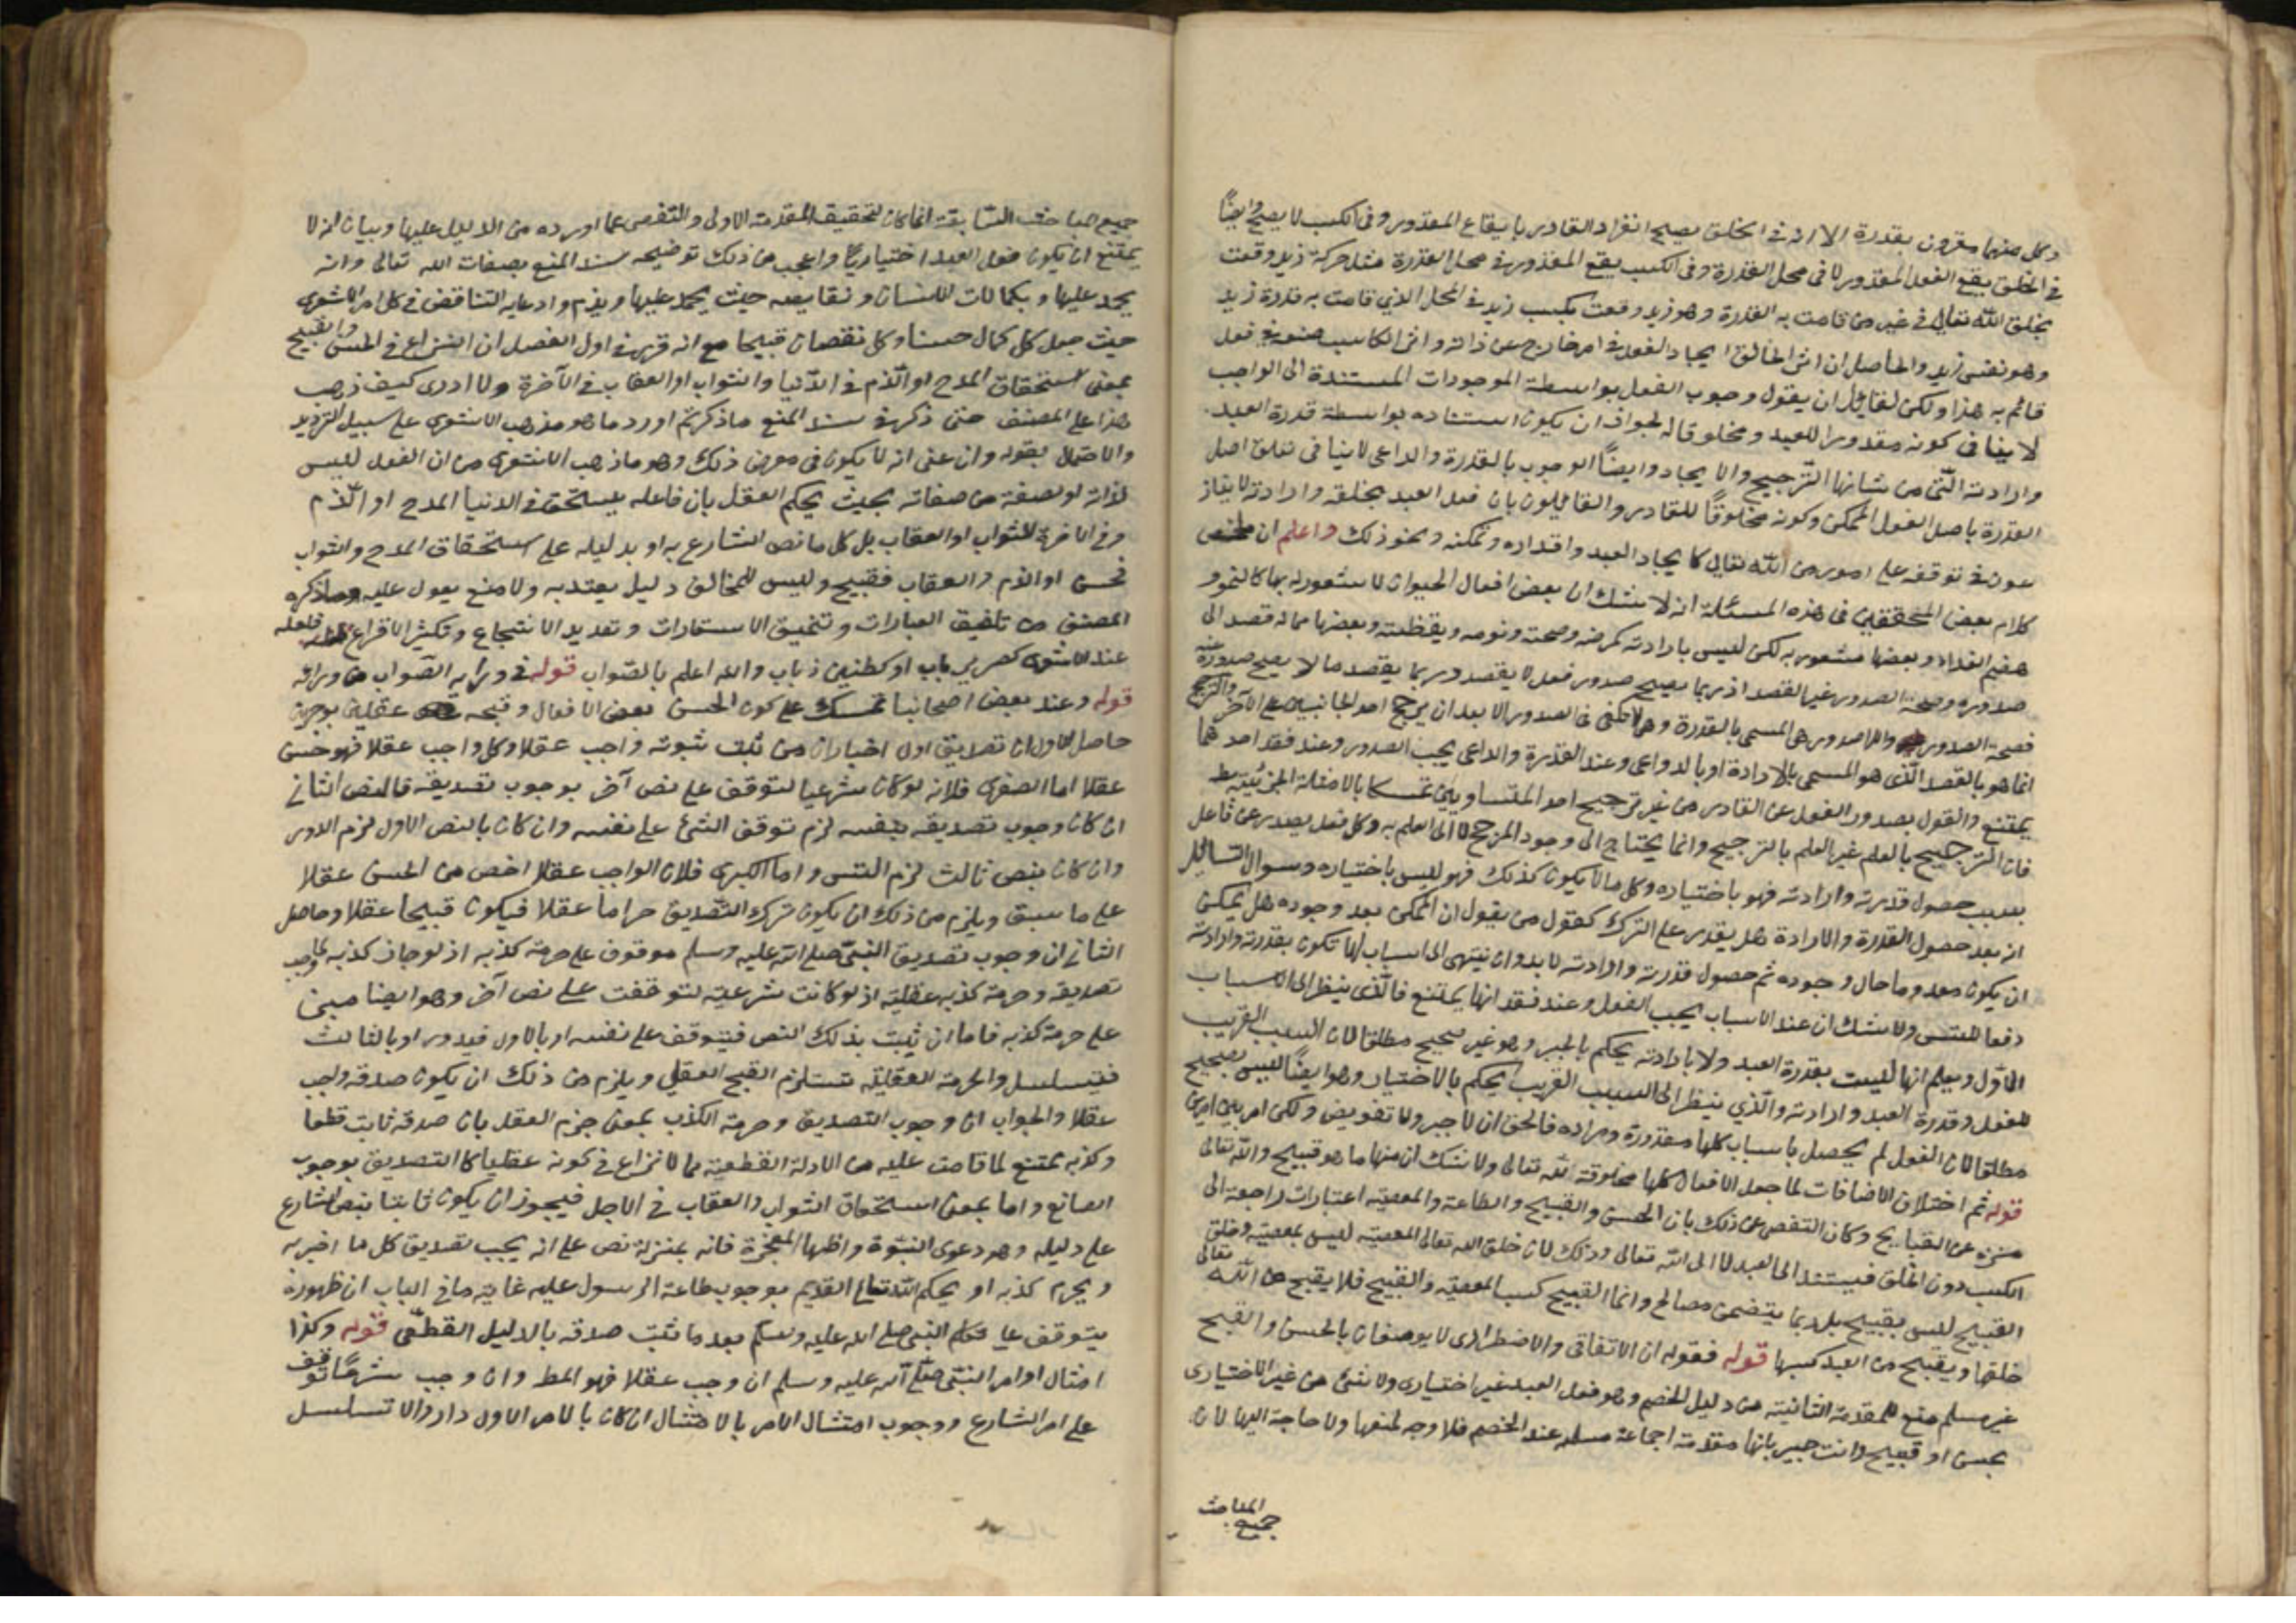 وكل منهما مقرون بقدرة الا انه في الخلق يصح انفراد القادر بايقاع المقدور وفي الكسب لا يصح وايضا
في الخلق يقع الفعل المقدور لا في محل القدرة وفي الكسب يقع المقدور في محل القدرة مثل حركة زيد وقعت
بخلق الله تعالى في غير من قامت به القدرة وهو زيد ووقعت بكسب زيد في المحل الذي قامت به قدرة زيد
وهو نفس زيد والحاصل ان اثر الخالق ايجاد الفعل في امر خارج عن ذاته واثر الكاسب صنعه في فعل
قائم به هذا ولكن لقائل ان يقول وجوب الفعل بواسطة الموجودات المستندة الى الواجب
لا ينافي كونه مقدورا للعبد ومخلوقا له لجواز ان يكون استناده بواسطة قدرة العبد
وارادته التي من شانها الترجيح والايجاد وايضا الوجوب بالقدرة والداعي لا ينافي تعلق اصل
القدرة باصل الفعل الممكن وكونه مخلوقا للقادر والقائلون بان فعل العبد بخلقه وارادته لا
في توقفه على امور من الله تعالى كايجاد العبد واقداره وتمكنه ونحو ذلك واعلم ان ملخص
كلام بعض المحققين في هذه المسئلة انه لا شك ان بعض افعال الحيوان لا شعور له بها كالنمو و
هضم الغذاء وبعضها مشعور به لكن ليس بارادته كمرضه وصحته ونومه ويقظته وبعضها مما له قصد الى
صدوره وصحة الصدور غير القصد اذ ربما يصح صدور فعل لا يقصد وربما يقصد ما لا يصح صدوره عنه
فصحة الصدور واللاصدور هي المسمى بالقدرة وهي لا تكفي في الصدور الا بعد ان يرجح احد الجانبين على الآخر والترجيح
انما هو بالقصد الذي هو المسمى بالارادة او بالدواعي وعند القدرة والداعي يجب الصدور وعند فقد احدهما
يمتنع والقول بصدور الفعل عن القادر من غير ترجيح احد المتساويين تمسكا بالامثلة الجزئية
فان الترجيح بالعلم غير العلم بالترجيح وانما يحتاج الى وجود المرجح لا الى العلم به وكل فعل يصدر عن فاعل
بسبب حصول قدرته وارادته فهو باختياره وكل ما لا يكون كذلك فهو ليس باختياره وسوال السائل
انه بعد حصول القدرة والارادة هل يقدر على الترك كقول من يقول ان الممكن بعد وجوده هل يمكن
ان يكون معدوما حال وجوده ثم حصول قدرته وارادته لا بد وان ينتهى الى اسباب لا تكون بقدرته وارادته
دفعا للتس ولا شك ان عند الاسباب يجب الفعل وعند فقدانها يمتنع فالذى ينظر الى الاسباب
الاول ويعلم انها ليست بقدرة العبد ولا بارادته يحكم بالجبر وهو غير صحيح مطلقا لان السبب القريب
للفعل وقدرة العبد وارادته والذي ينظر الى السبب القريب يحكم بالاختيار وهو ايضا ليس بصحيح
مطلقا لان الفعل لم يحصل باسباب كلها مقدورة ومراده فالحق ان لا جبر ولا تفويض ولكن امر بين امرين
قوله ثم اختلاف الاضافات لما جعل الافعال كلها مخلوقة لله تعالى ولا شك ان منها ما هو قبيح والله تعالى
منزه عن القبايح وكان التفصى عن ذلك بان الحسن والقبيح والطاعة والمعصية اعتبارات راجعة الى
الكسب دون الخلق فيستند الى العبد لا الى الله تعالى وذلك لان خلق الله تعالى المعصية ليس بمعصية وخلق
القبيح ليس بقبيح بل ربما يتضمن مصالح وانما القبيح كسب المعصية والقبيح فلا يقبح من الله تعالى
خلقها ويقبح من العبد كسبها قوله فقوله ان الاتفاقي والاضطراري لا يوصفان بالحسن والقبح
غير مسلم منع للمقدمة الثانية من دليل الخصم وهو فعل العبد غير اختياري ولا شئ من غير الاختياري
بحسن او قبيح وانت خبير بانها مقدمة اجماعية مسلمة عند الخصم فلا وجه لمنعها ولا حاجة اليها لان
جميع المباحث
جميع مباحث السابقة انما كان لتحقيق المقدمة الاولى والتفصى عما اورده من الدليل عليها وبيان انه لا
يمتنع ان يكون فعل العبد اختياريا واعجب من ذلك توضيحه سند المنع بصفات الله تعالى وانه
يحمد عليها وبكمالات الانسان ونقايصه حيث يحمد عليها ويذم وادعايه التناقض في كلام الاشعرى
حيث جعل كل كمال حسنا وكل نقصان قبيحا مع انه قرر في اول الفصل ان النزاع في الحسن والقبيح
بمعنى استحقاق المدح او الذم في الدنيا والثواب او العقاب في الآخرة ولا ادرى كيف ذهب
هذا على المصنف حتى ذكر في سند المنع ما ذكر ثم اورد ما هو مذهب الاشعرى على سبيل الترديد
والاحتمال بقوله وان عنى انه لا يكون في معرض ذلك وهو ما ذهب الاشعرى من ان الفعل ليس
لذاته او لصفة من صفاته بحيث يحكم العقل بان فاعله يستحق في الدنيا المدح او الذم
وفي الاخرة للثواب او العقاب بل كل ما نص الشارع به او بدليله على استحقاق المدح والثواب
فحسن او الذم والعقاب فقبيح وليس للمخالف دليل يعتد به ولا منع يعول عليه وما ذكره
المصنف من تلفيق العبارات وتنميق الاستعارات وتعديد الاسجاع وتكثير الاقراع فلعله
عند الاشعرى كصرير باب او كطنين ذباب والله اعلم بالصواب قوله في ورايه الصواب من ورائه
قوله وعند بعض اصحابنا تمسك على كون الحسن بعض الافعال وقبحه عقليين بوجهين
حاصل الاول ان تصديق اول اخبار ان من ثبت نبوته واجب عقلا وكل واجب عقلا فهو حسن
عقلا اما الصغرى فلانه لو كان شرعيا لتوقف على نص آخر بوجوب تصديقه فالنص الثاني
ان كان وجوب تصديقه بنفسه لزم توقف الشئ على نفسه وان كان بالنص الاول لزم الدور
وان كان بنص ثالث لزم التس واما الكبرى فلان الواجب عقلا اخص من الحسن عقلا
على ما سبق ويلزم من ذلك ان يكون ترك التصديق حراما عقلا فيكون قبيحا عقلا وحاصل
الثاني ان وجوب تصديق النبي صلى الله عليه وسلم موقوف على حرمة كذبه اذ لو جاز كذبه لما وجب
تصديقه وحرمة كذبه عقلية اذ لو كانت شرعية لتوقفت على نص آخر وهو ايضا مبنى
على حرمة كذبه فاما ان يثبت بذلك النص فيتوقف على نفسه او بالاول فيدور او بالثالث
فيتسلسل والحرمة العقلية تستلزم القبح العقلي ويلزم من ذلك ان يكون صدقه واجب
عقلا والجواب ان وجوب التصديق وحرمة الكذب بمعنى جزم العقل بان صدقه ثابت قطعا
وكذبه ممتنع لما قامت عليه من الادلة القطعية مما لا نزاع في كونه عقليا كالتصديق بوجود
الصانع واما بمعنى استحقاق الثواب والعقاب في الاجل فيجوز ان يكون ثابتا بنص الشارع
على دليله وهو دعوى النبوة واظهار المعجزة فانه بمنزلة نص على انه يجب تصديق كل ما اخبر به
ويحرم كذبه او بحكم الله تعالى القديم بوجوب طاعة الرسول عليه غاية ما في الباب ان ظهوره
يتوقف على تكلم النبي صلى الله عليه وسلم بعد ما ثبت صدقه بالدليل القطعي قوله وكذا
امتثال اوامر النبي صلى الله عليه وسلم ان وجب عقلا فهو المط وان وجب شرعا توقف
على امر الشارع ووجوب امتثال الامر بالامتثال ان كان بالامر الاول دار والا تسلسل